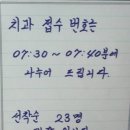 치과 접수 번호는
07:30 ~ 07:40분에
나누어 드립니다.
선착순 23명